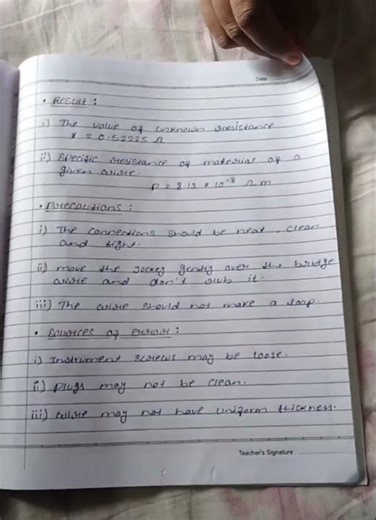 Date
• Result :
i) The value of unknown resistance
x = 0.52225 Ω
ii) Specific resistance of material of a
given wire.
ρ = 8.13 × 10⁻⁸ Ω m
• Precautions :
i) The connections should be neat, clean
and tight.
ii) move the Jockey gently over the bridge
wire and don't rub it.
iii) The wire should not make a loop.
• Sources of error :
i) Instrument screws may be loose.
ii) plugs may not be clean.
iii) wire may not have uniform thickness.
Teacher's Signature